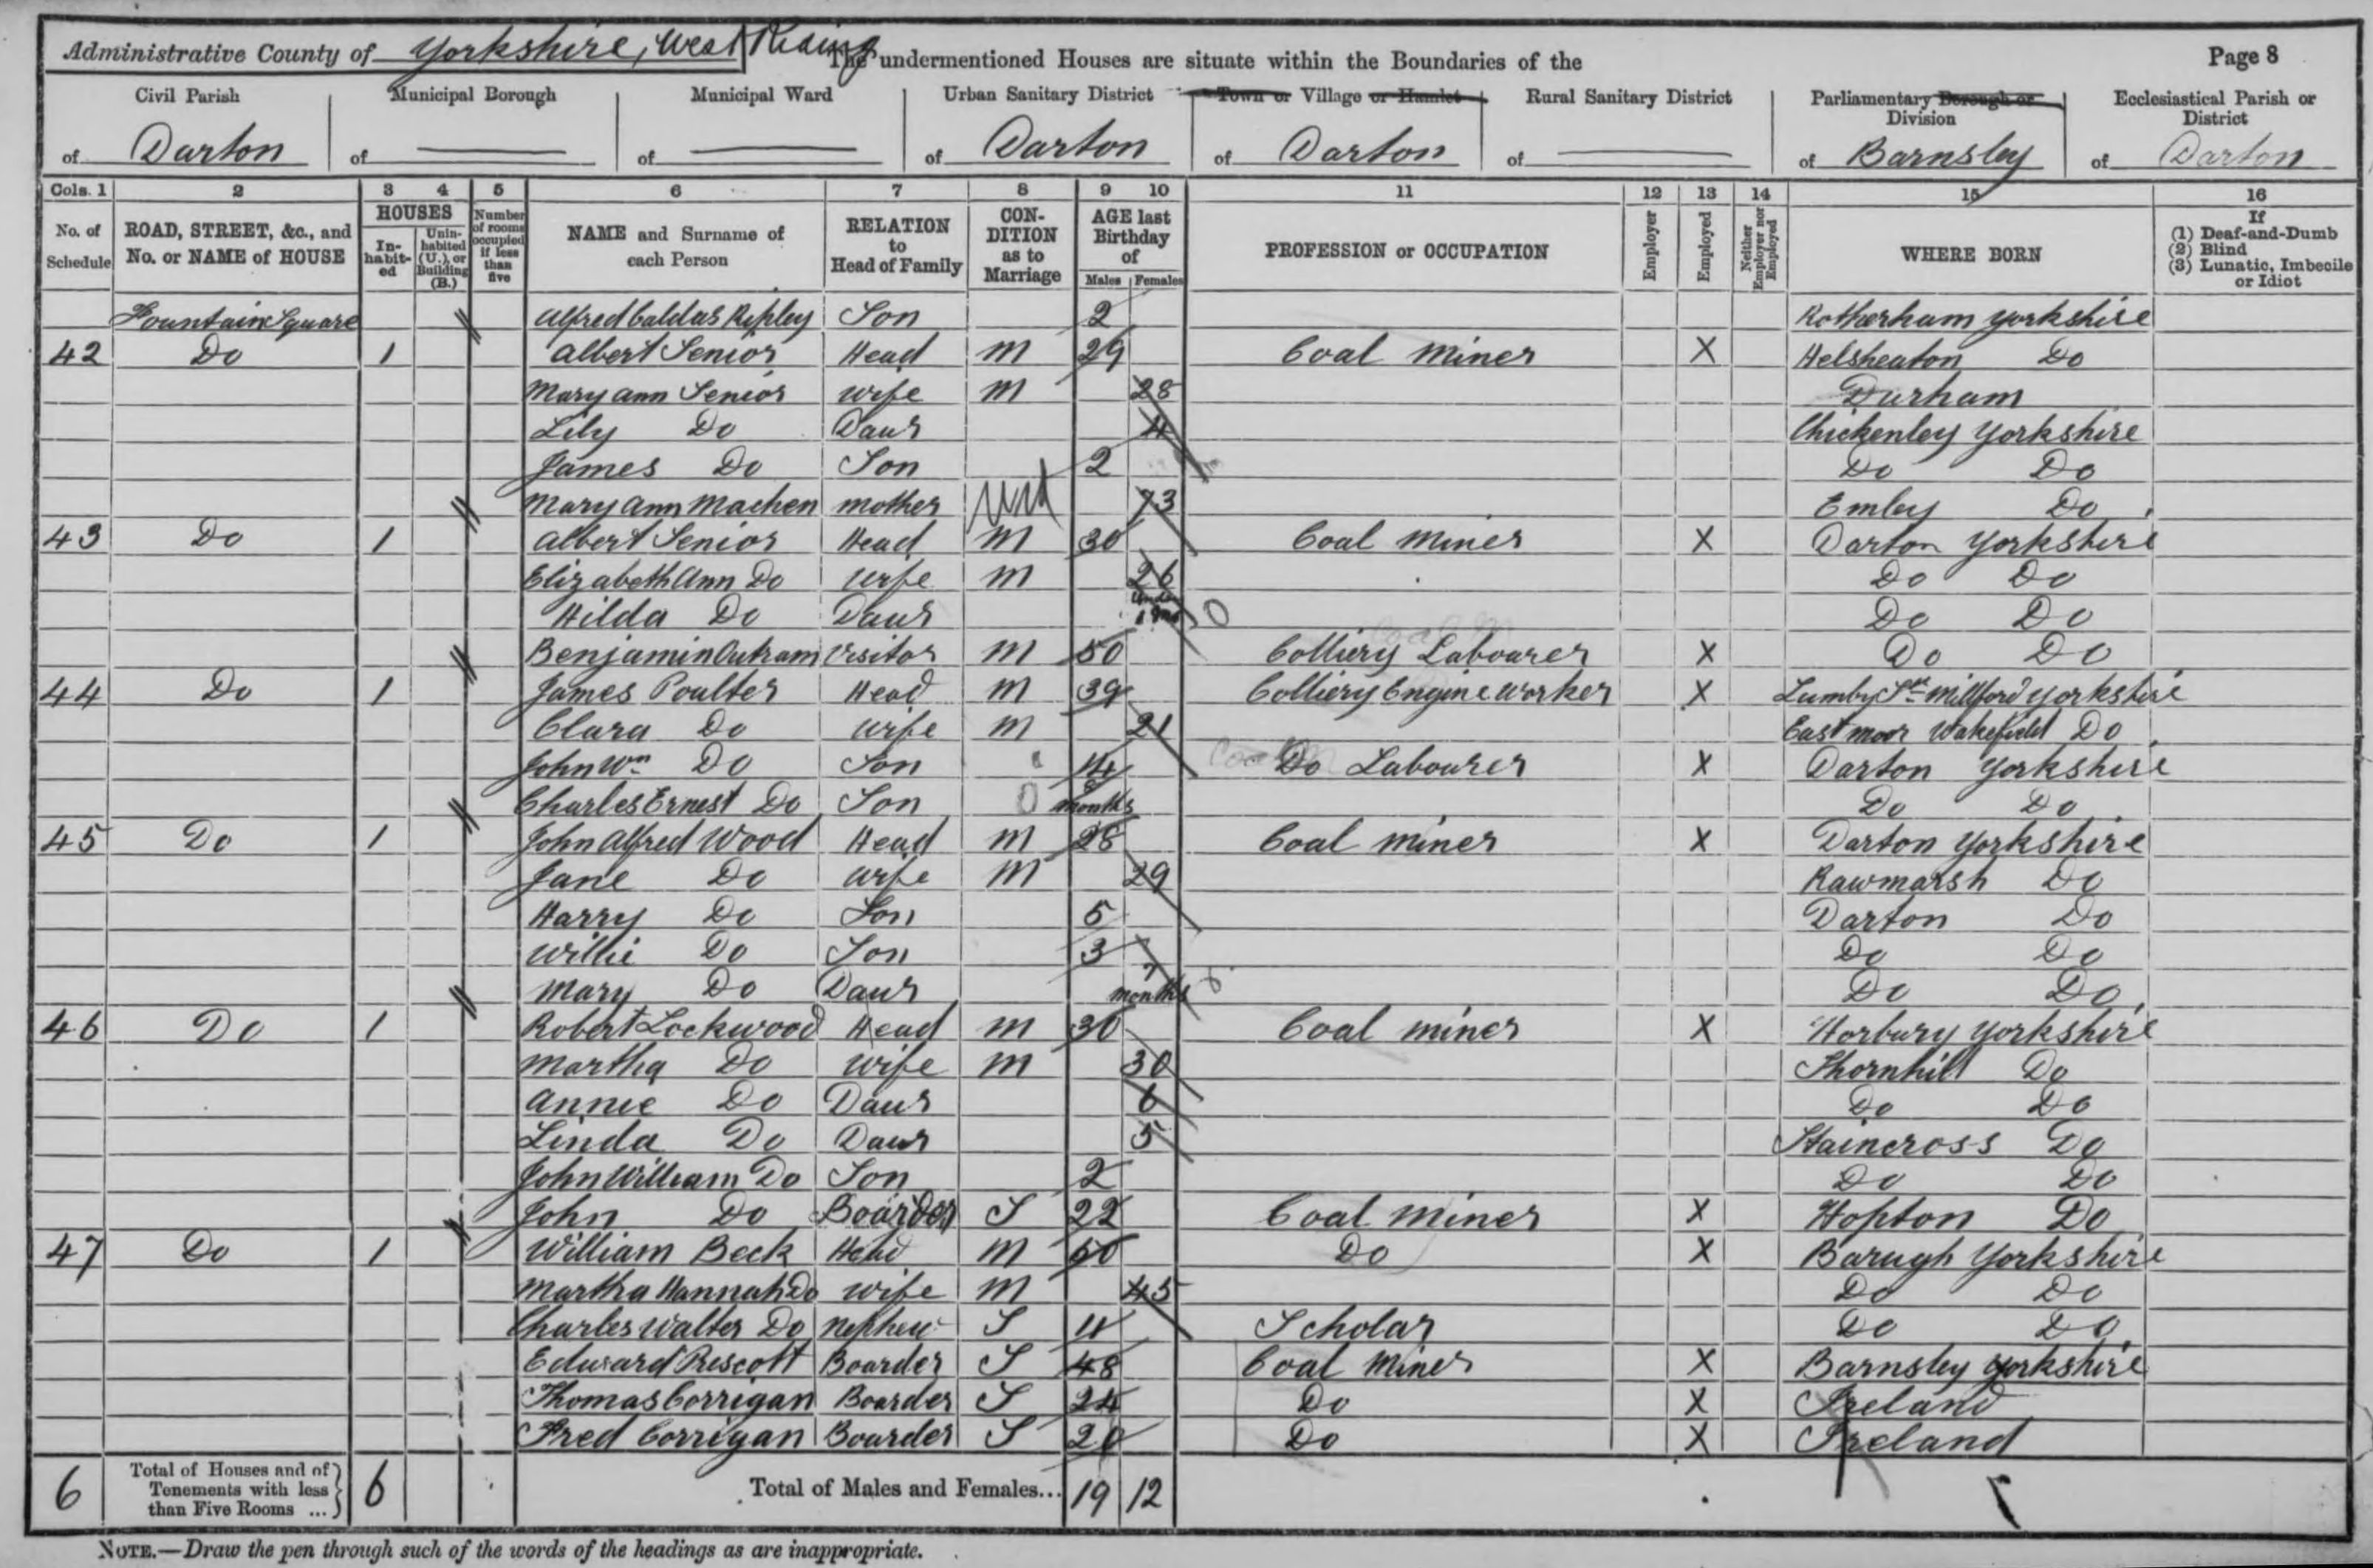 Administrative County of Yorkshire, West Riding The undermentioned Houses are situate within the Boundaries of the Page 8
Civil Parish Municipal Borough Municipal Ward Urban Sanitary District Town or Village or Hamlet Rural Sanitary District Parliamentary Borough or Division Ecclesiastical Parish or District
of Darton of of of Darton of Darton of of Barnsley of Darton
Cols. 1 2 3 4 5 6 7 8 9 10 11 12 13 14 15 16
No. of Schedule ROAD, STREET, &c., and No. or NAME of HOUSE HOUSES In-habit-ed Unin-habited (U.), or Building (B.) Number of rooms occupied if less than five NAME and Surname of each Person RELATION to Head of Family CON-DITION as to Marriage AGE last Birthday of Males Females PROFESSION or OCCUPATION Employer Employed Neither Employer nor Employed WHERE BORN If (1) Deaf-and-Dumb (2) Blind (3) Lunatic, Imbecile or Idiot
Fountain Square Alfred Ripley Son 2 Rotherham Yorkshire
42 Do 1 Albert Senior Head M 29 Coal Miner X Do
Mary Ann Senior Wife M 28 Durham
Lily Do Daur 4 Chickenley Yorkshire
James Do Son 2 Do Do
Mary Ann Machen Mother Wid 73 Emley Do
43 Do 1 Albert Senior Head M 30 Coal Miner X Darton Yorkshire
Elizabeth Ann Do Wife M 26 Do Do
Hilda Do Daur under Do Do
Benjamin Outram Visitor M 50 Colliery Labourer X Do Do
44 Do 1 James Poulter Head M 39 Colliery Engine Worker X Lumby Millford Yorkshire
Clara Do Wife M 21 East Moor Wakefield Do
John Wm Do Son 14 Do Labourer X Darton Yorkshire
Charles Ernest Do Son months Do Do
45 Do 1 John Alfred Wood Head M 28 Coal Miner X Darton Yorkshire
Jane Do Wife M 29 Rawmarsh Do
Harry Do Son 5 Darton Do
Willie Do Son 3 Do Do
Mary Do Daur 7 months Do Do
46 Do 1 Robert Lockwood Head M 30 Coal Miner X Horbury Yorkshire
Martha Do Wife M 30 Thornhill Do
Annie Do Daur 6 Do Do
Linda Do Daur 5 Staincross Do
John William Do Son 2 Do Do
John Do Boarder S 22 Coal Miner X Hopton Do
47 Do 1 William Beck Head M Do X Barugh Yorkshire
Martha Hannah Do Wife M 45 Do Do
Charles Walter Do Nephew S 11 Scholar Do Do
Edward Prescott Boarder S 48 Coal Miner X Barnsley Yorkshire
Thomas Corrigan Boarder S 24 Do X Ireland
Fred Corrigan Boarder S 20 Do X Ireland
6 Total of Houses and of Tenements with less than Five Rooms ... 6 Total of Males and Females... 19 12
NOTE.—Draw the pen through such of the words of the headings as are inappropriate.